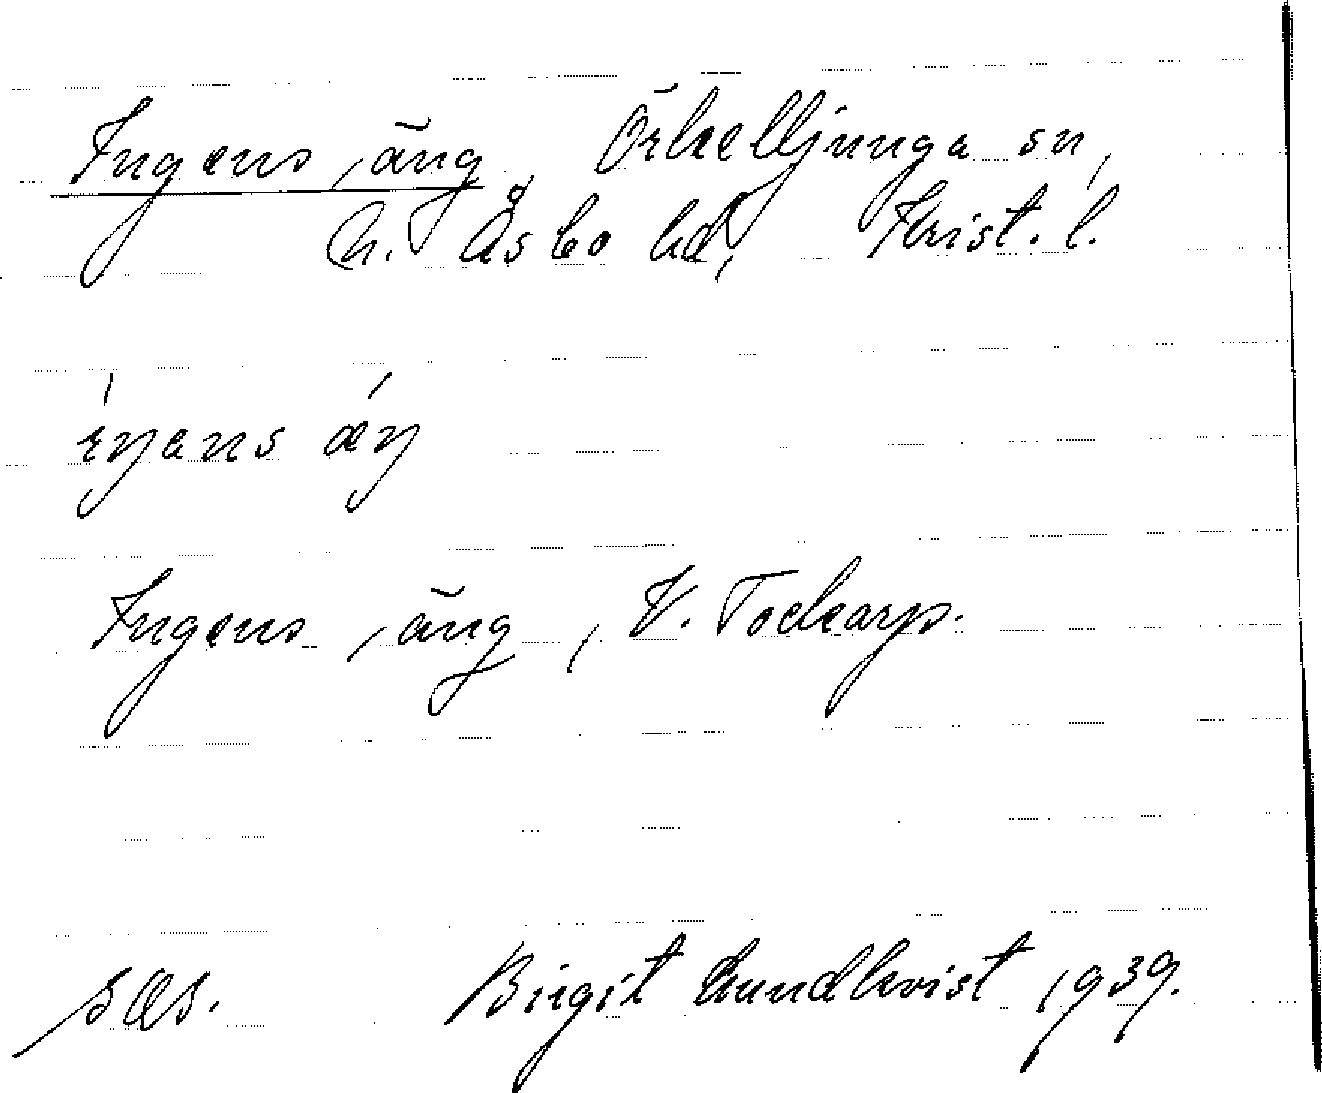 Ingens äng Örkelljunga sn,
N. Åsbo hd, Krist. l.
íŋans ǽŋ
Ingens äng, V. Tockarp.
Birgit Lundkvist 1939.